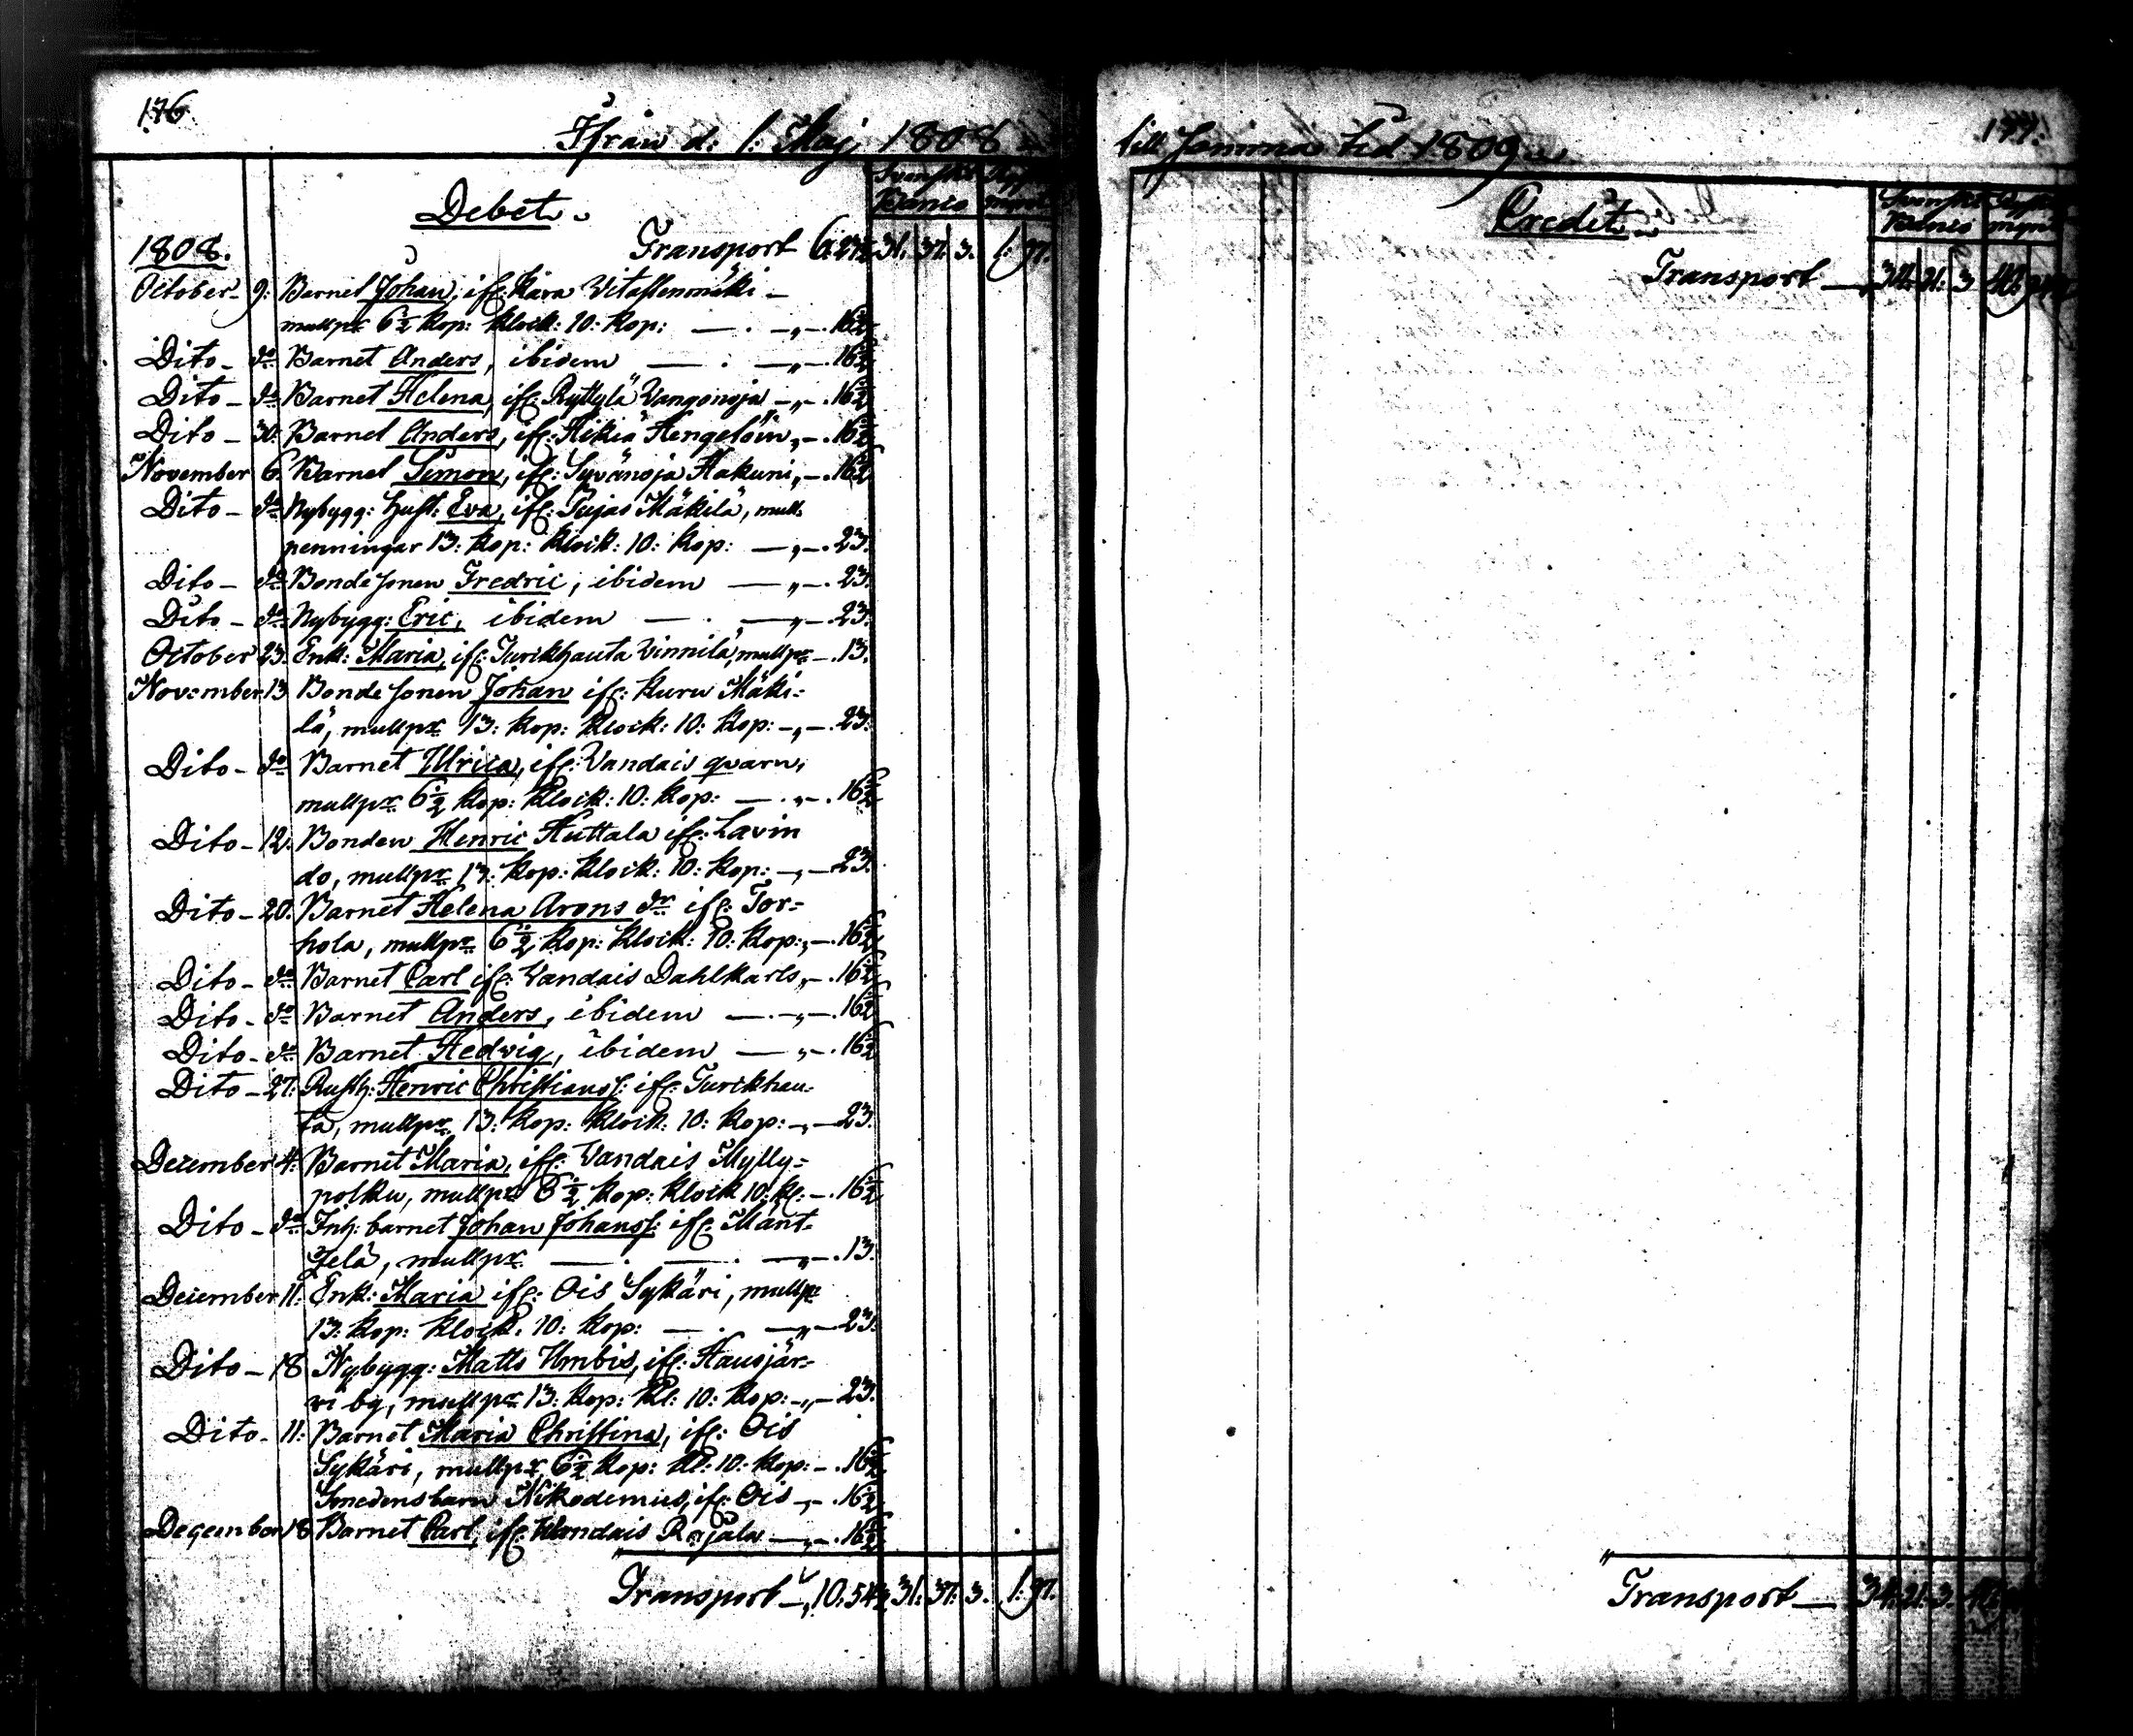 176.
Ifrån d: 1: Maj 1808
Debet
Svenskt
Banco
1808.
Transport 6. 31. 37. 3. 1. 97.
October 9. Barnet Johan, if: Kara
mullpr 6½ kop: klock: 10: kop: — . — „ — . 16½
Dito - do Barnet Anders, ibidem — . — „ — . 16½
Dito - do Barnet Helena, if: Ryttylä Wangonoja — „ — . 16½
Dito - 30. Barnet Anders, if: Hikiä Hengelöin „ — . 16½
November 6. Barnet Simon, if: Syvänoja Hakuni „ — . 16½
Dito - do Nybygg: Hust: Eva, if: Pujas Mäkilä, mull-
penningar 13: kop: klock: 10: kop: — „ — . 23.
Dito - do Bondesonen Fredric, ibidem — „ — . 23.
Dito - do Nybygg: Eric, ibidem — . — „ — . 23.
October 23. Enk: Maria, if: Turickhauta Vinnilä, mullpr — . 13.
November 13 Bondesonen Johan if: Kuru Mäki=
lä, mullpr 13: kop: klock: 10: kop: — „ — . 23.
Dito - do Barnet Ulrica, if: Wandais qvarn,
mullpr 6½ kop: klock: 10: kop: — . „ — . 16½
Dito - 12. Bonden Henric Huttala if: Lavin
do, mullpr 13: kop: klock: 10: kop: — „ — 23.
Dito - 20. Barnet Helena Arons dr if: Tor=
hola, mullpr 6½ kop: klock: 10: kop: „ — . 16½
Dito - do Barnet Carl if: Wandais Dahlkarls „ — . 16½
Dito - do Barnet Anders, ibidem — . — „ — . 16½
Dito - do Barnet Hedwig, ibidem — „ — . 16½
Dito - 27. Rusth: Henric Christianss: if: Turickhau=
ta, mullpr 13: kop: klock: 10: kop: — „ — 23.
December 4: Barnet Maria, if: Wandais Mylly=
polku, mullpr 6½ kop: klock 10: k: — . 16½
Dito - do Inh: barnet Johan Johanss: if: Mänt=
zelä, mullpr — . — . — „ — . 13.
December 11: Enk: Maria if: Ois Sykäri, mullpr
13: kop: klock: 10: kop: — . — „ — 23.
Dito - 18 Nybygg: Matts Umbis, if: Hausjär=
vi by, mullpr 13: kop: kl: 10: kop: — „ — 23.
Dito - 11: Barnet Maria Christina, if: Ois
Sykäri, mullpr 6½ kop: kl: 10: kop: — . 16½
Smedens barn Nikodemus, if: Ois — „ — . 16½
December 18 Barnet Carl, if: Wandais Rajala — „ — . 16½
Transport — „ 10. 54½ 31. 37. 3. 1. 97.
till samma tid 1809
177.
Credit
Svenskt
Banco
Transport — 34. 21. 3
Transport — 34. 21. 3.